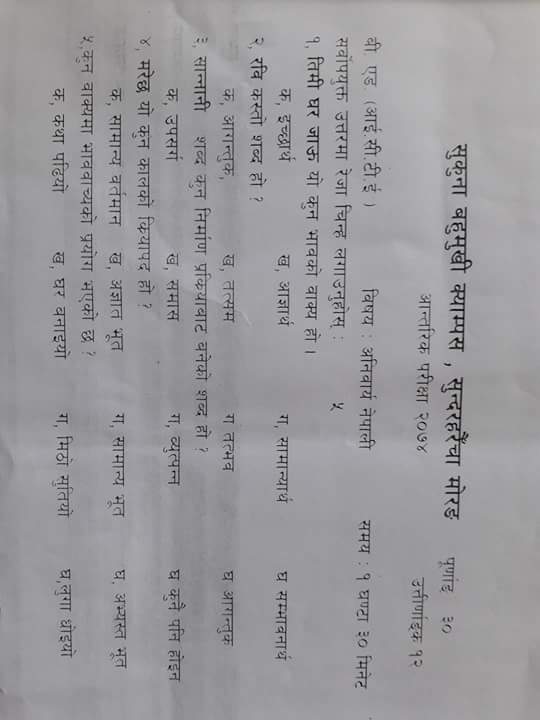 सुकुना बहुमुखी क्याम्पस , सुन्दरहरैंचा मोरङ
आन्तरिक परीक्षा २०७४ पूर्णाङ्क ३०
उत्तीर्णाङ्क १२
बी एड. (आई.सी.टी.ई ) विषय : अनिवार्य नेपाली समय : १ घण्टा ३० मिनेट
सर्वोपयुक्त उत्तरमा रेजा चिन्ह लगाउनुहोस् : ५
१, तिमी घर जाऊ यो कुन भावको वाक्य हो ।
क, इच्छार्थ ख, आज्ञार्थ ग, सामान्यार्थ घ सम्भावनार्थ
२, रवि कस्तो शब्द हो ?
क, आगन्तुक, ख, तत्सम ग तत्भव घ आगन्तुक
३, सालनाली शब्द कुन निर्माण प्रकियाबाट बनेको शब्द हो ?
क, उपसर्ग ख, समास ग, व्युत्पन्न घ कुनै पनि होइन
४, मरेछ यो कुन कालको कियापद हो ?
क, सामान्य वर्तमान ख, अज्ञात भूत ग, सामान्य भूत घ. अभ्यस्त भूत
५,कुन वाक्यमा भाववाच्यको प्रयोग भएको छ ?
क, कथा पढियो ख, घर बनाइयो ग, मिठो सुतियो घ,लुगा धोइयो